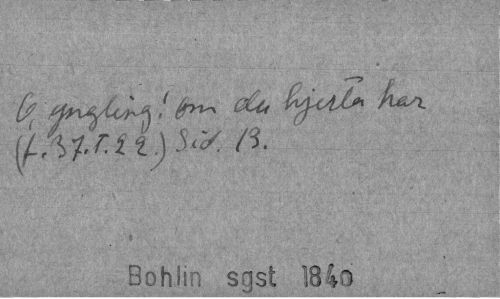 O, yngling! om du hjerta har
(f. 37. T. 22.) Sid. 13.
Bohlin sgst 1840